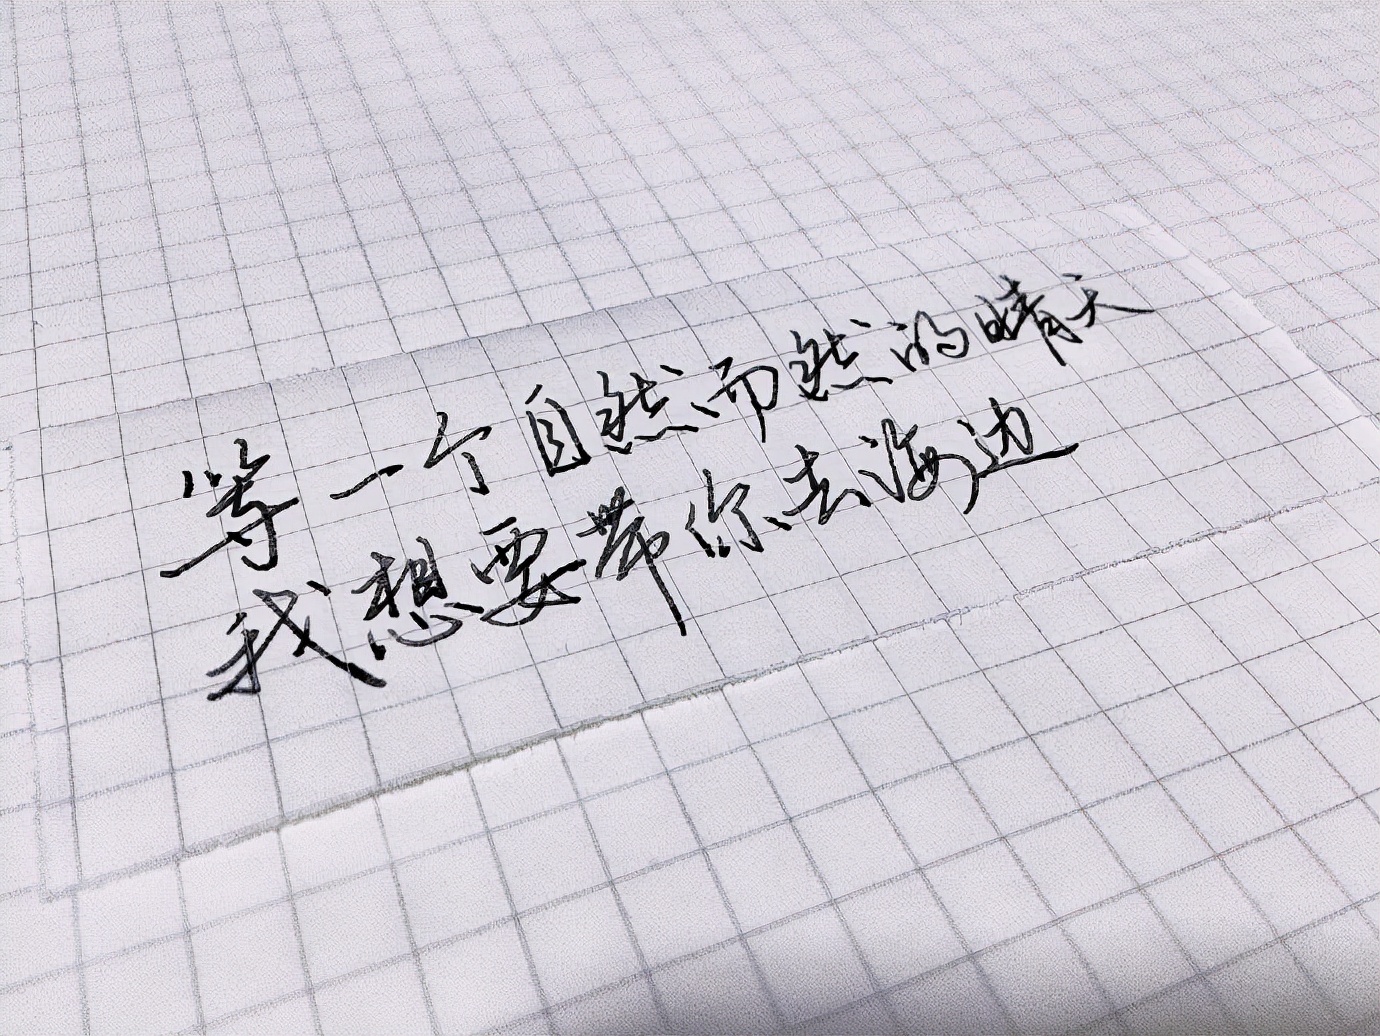 等一个自然而然的晴天
我想要带你去海边